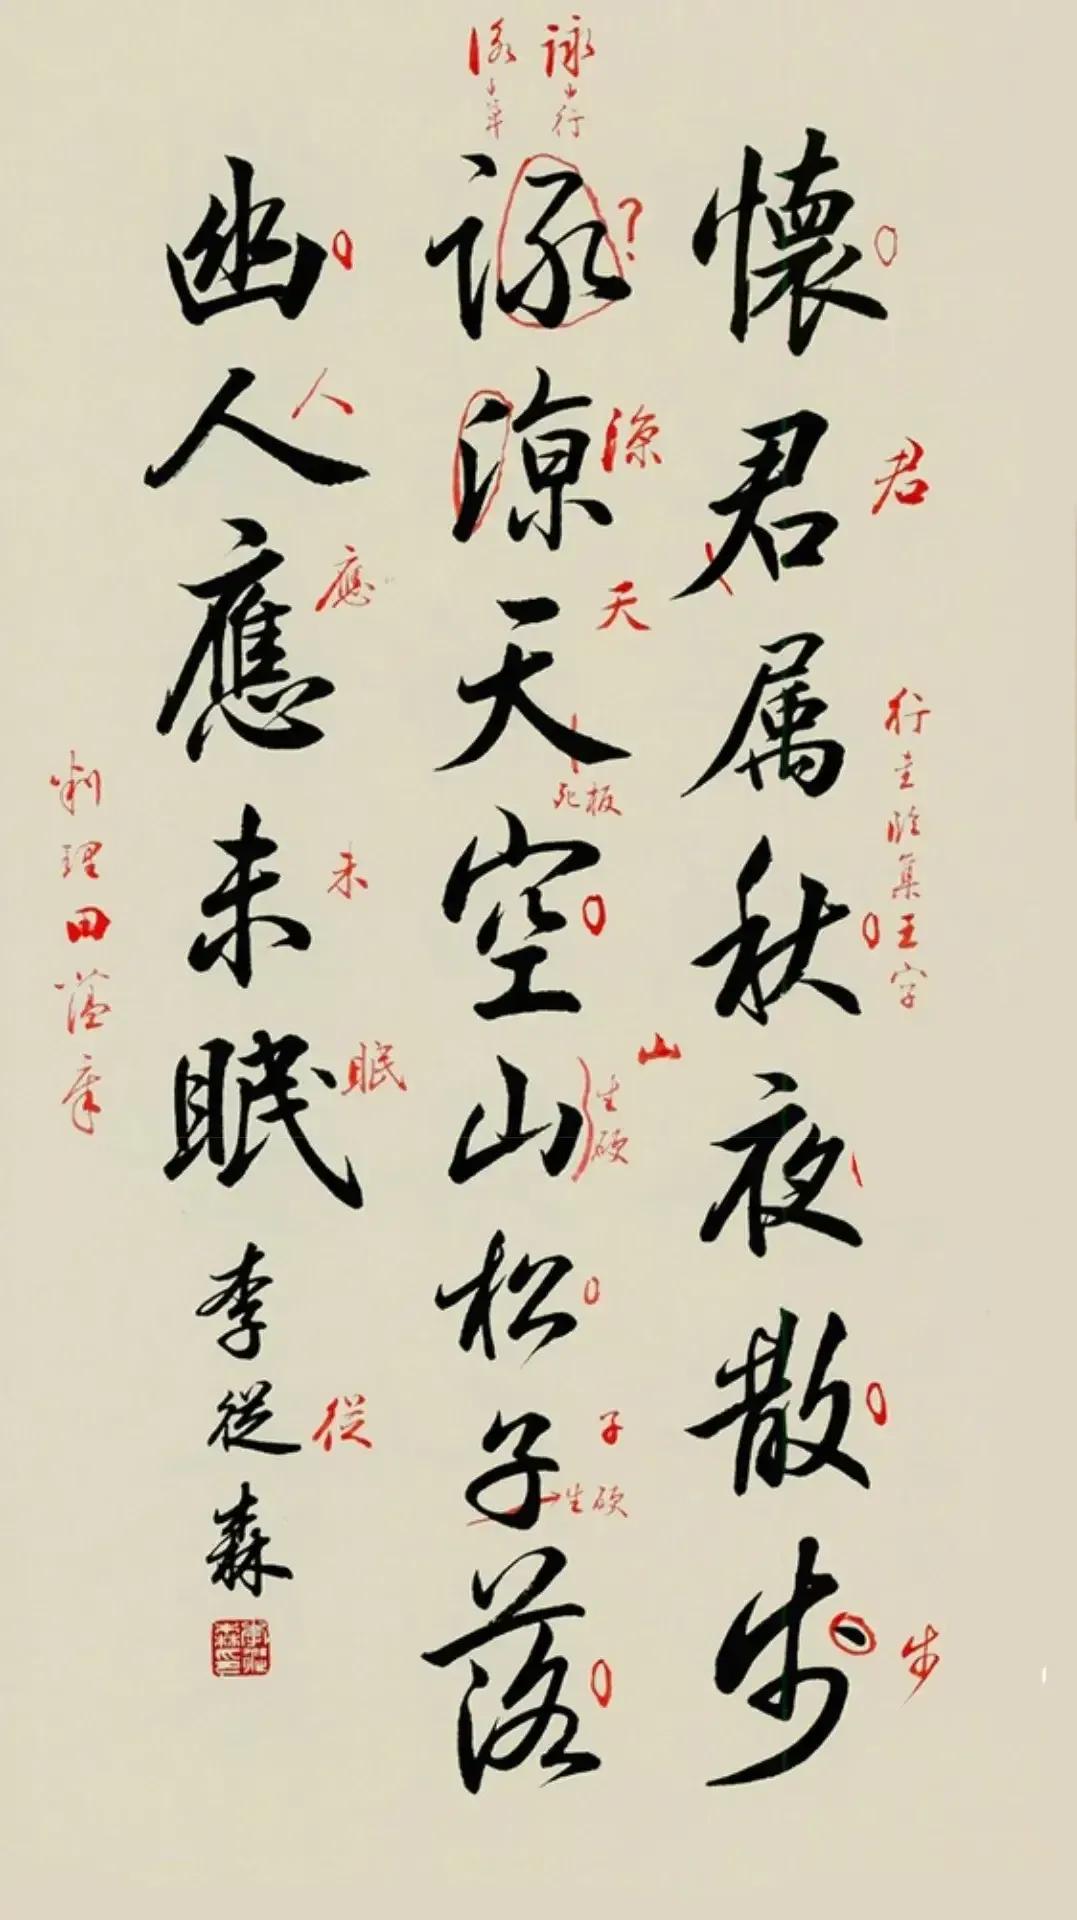 懷君属秋夜散步
詠涼天空山松子落
幽人應未眠
李從森
君
行
集王字
步
詠 行
草
?
涼
天
死板
山
生硬
子
生硬
人
應
未
眠
從
理田蕴章